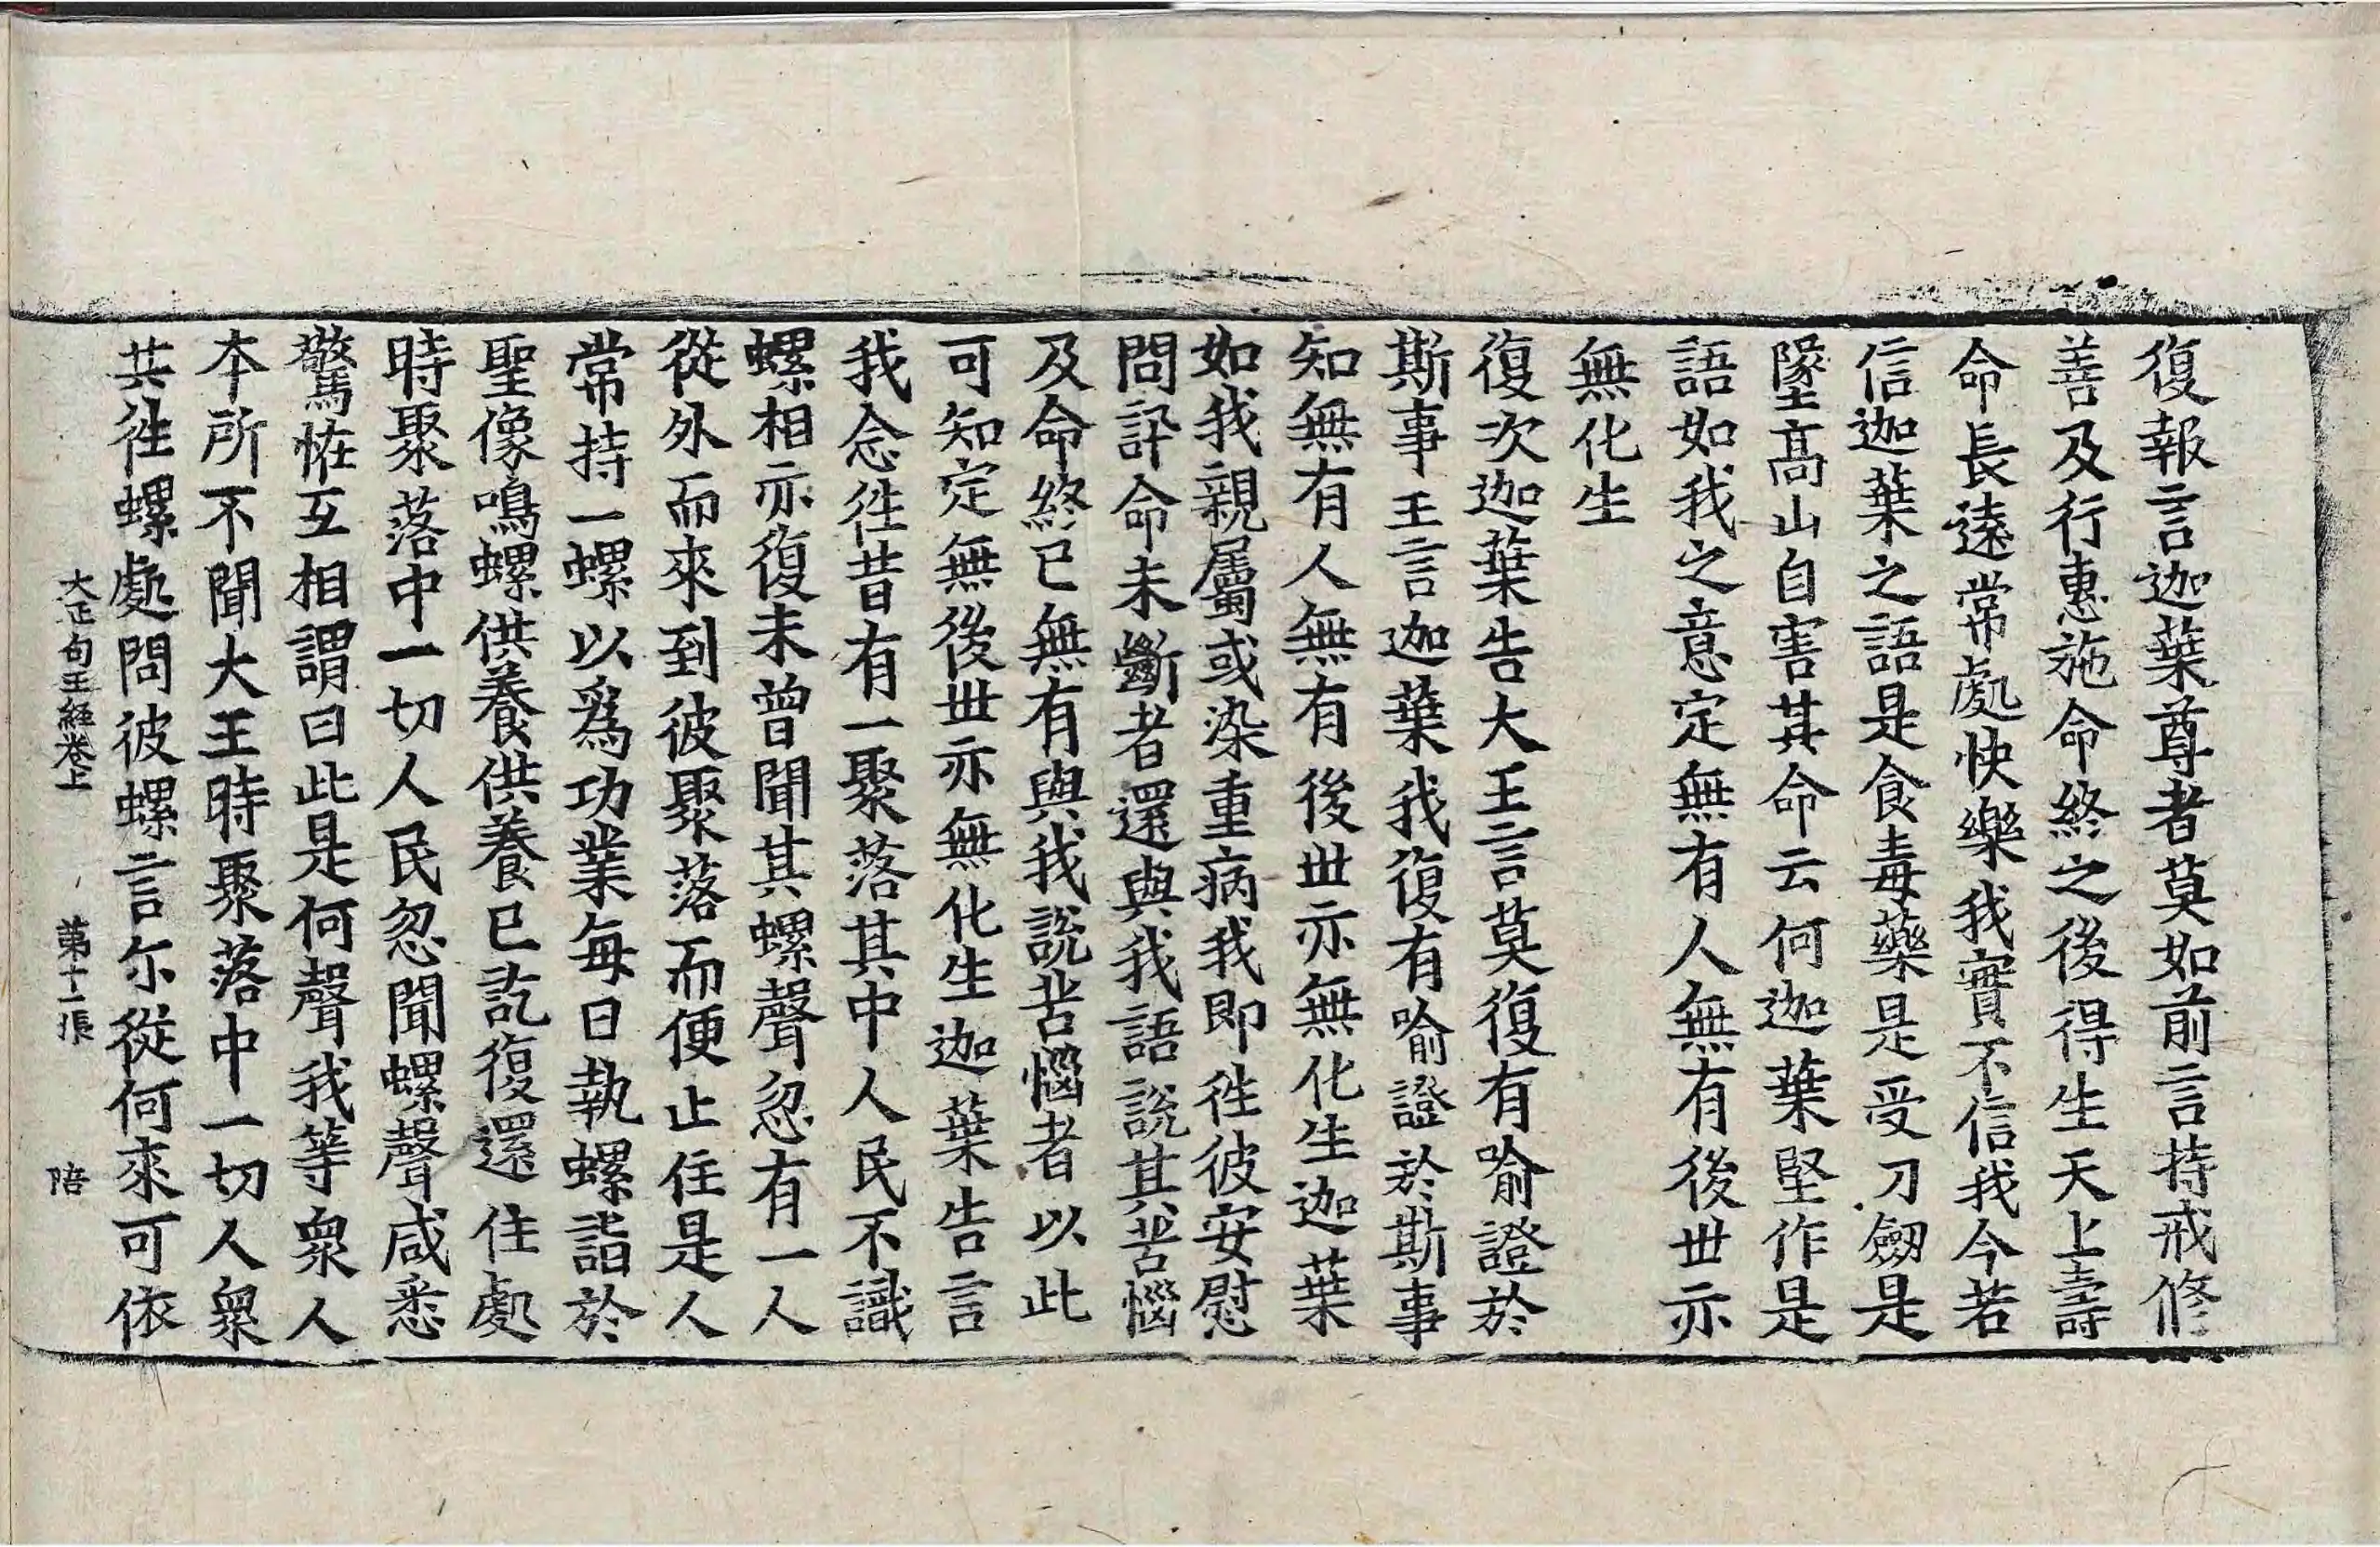 復報言迦葉尊者莫如前言持戒修
善及行惠施命終之後得生天上壽
命長遠常處快樂我實不信我今若
信迦葉之語是食毒藥是受刀劒是
墜高山自害其命云何迦葉堅作是
語如我之意定無有人無有後世亦
無化生
復次迦葉告大王言莫復有喻證於
斯事王言迦葉我復有喻證於斯事
知無有人無有後世亦無化生迦葉
如我親屬或染重病我即徃彼安慰
問訊命未斷者還與我語說其苦惱
及命終已無有與我說苦惱者以此
可知定無後世亦無化生迦葉告言
我念徃昔有一聚落其中人民不識
螺相亦復未曾聞其螺聲忽有一人
從外而來到彼聚落而便止住是人
常持一螺以爲功業每日執螺詣於
聖像鳴螺供養供養已訖復還住處
時聚落中一切人民忽聞螺聲咸悉
驚恠互相謂曰此是何聲我等衆人
本所不聞大王時聚落中一切人衆
共徃螺處問彼螺言尓從何來可依
大正句王経卷上 第十一張 陪